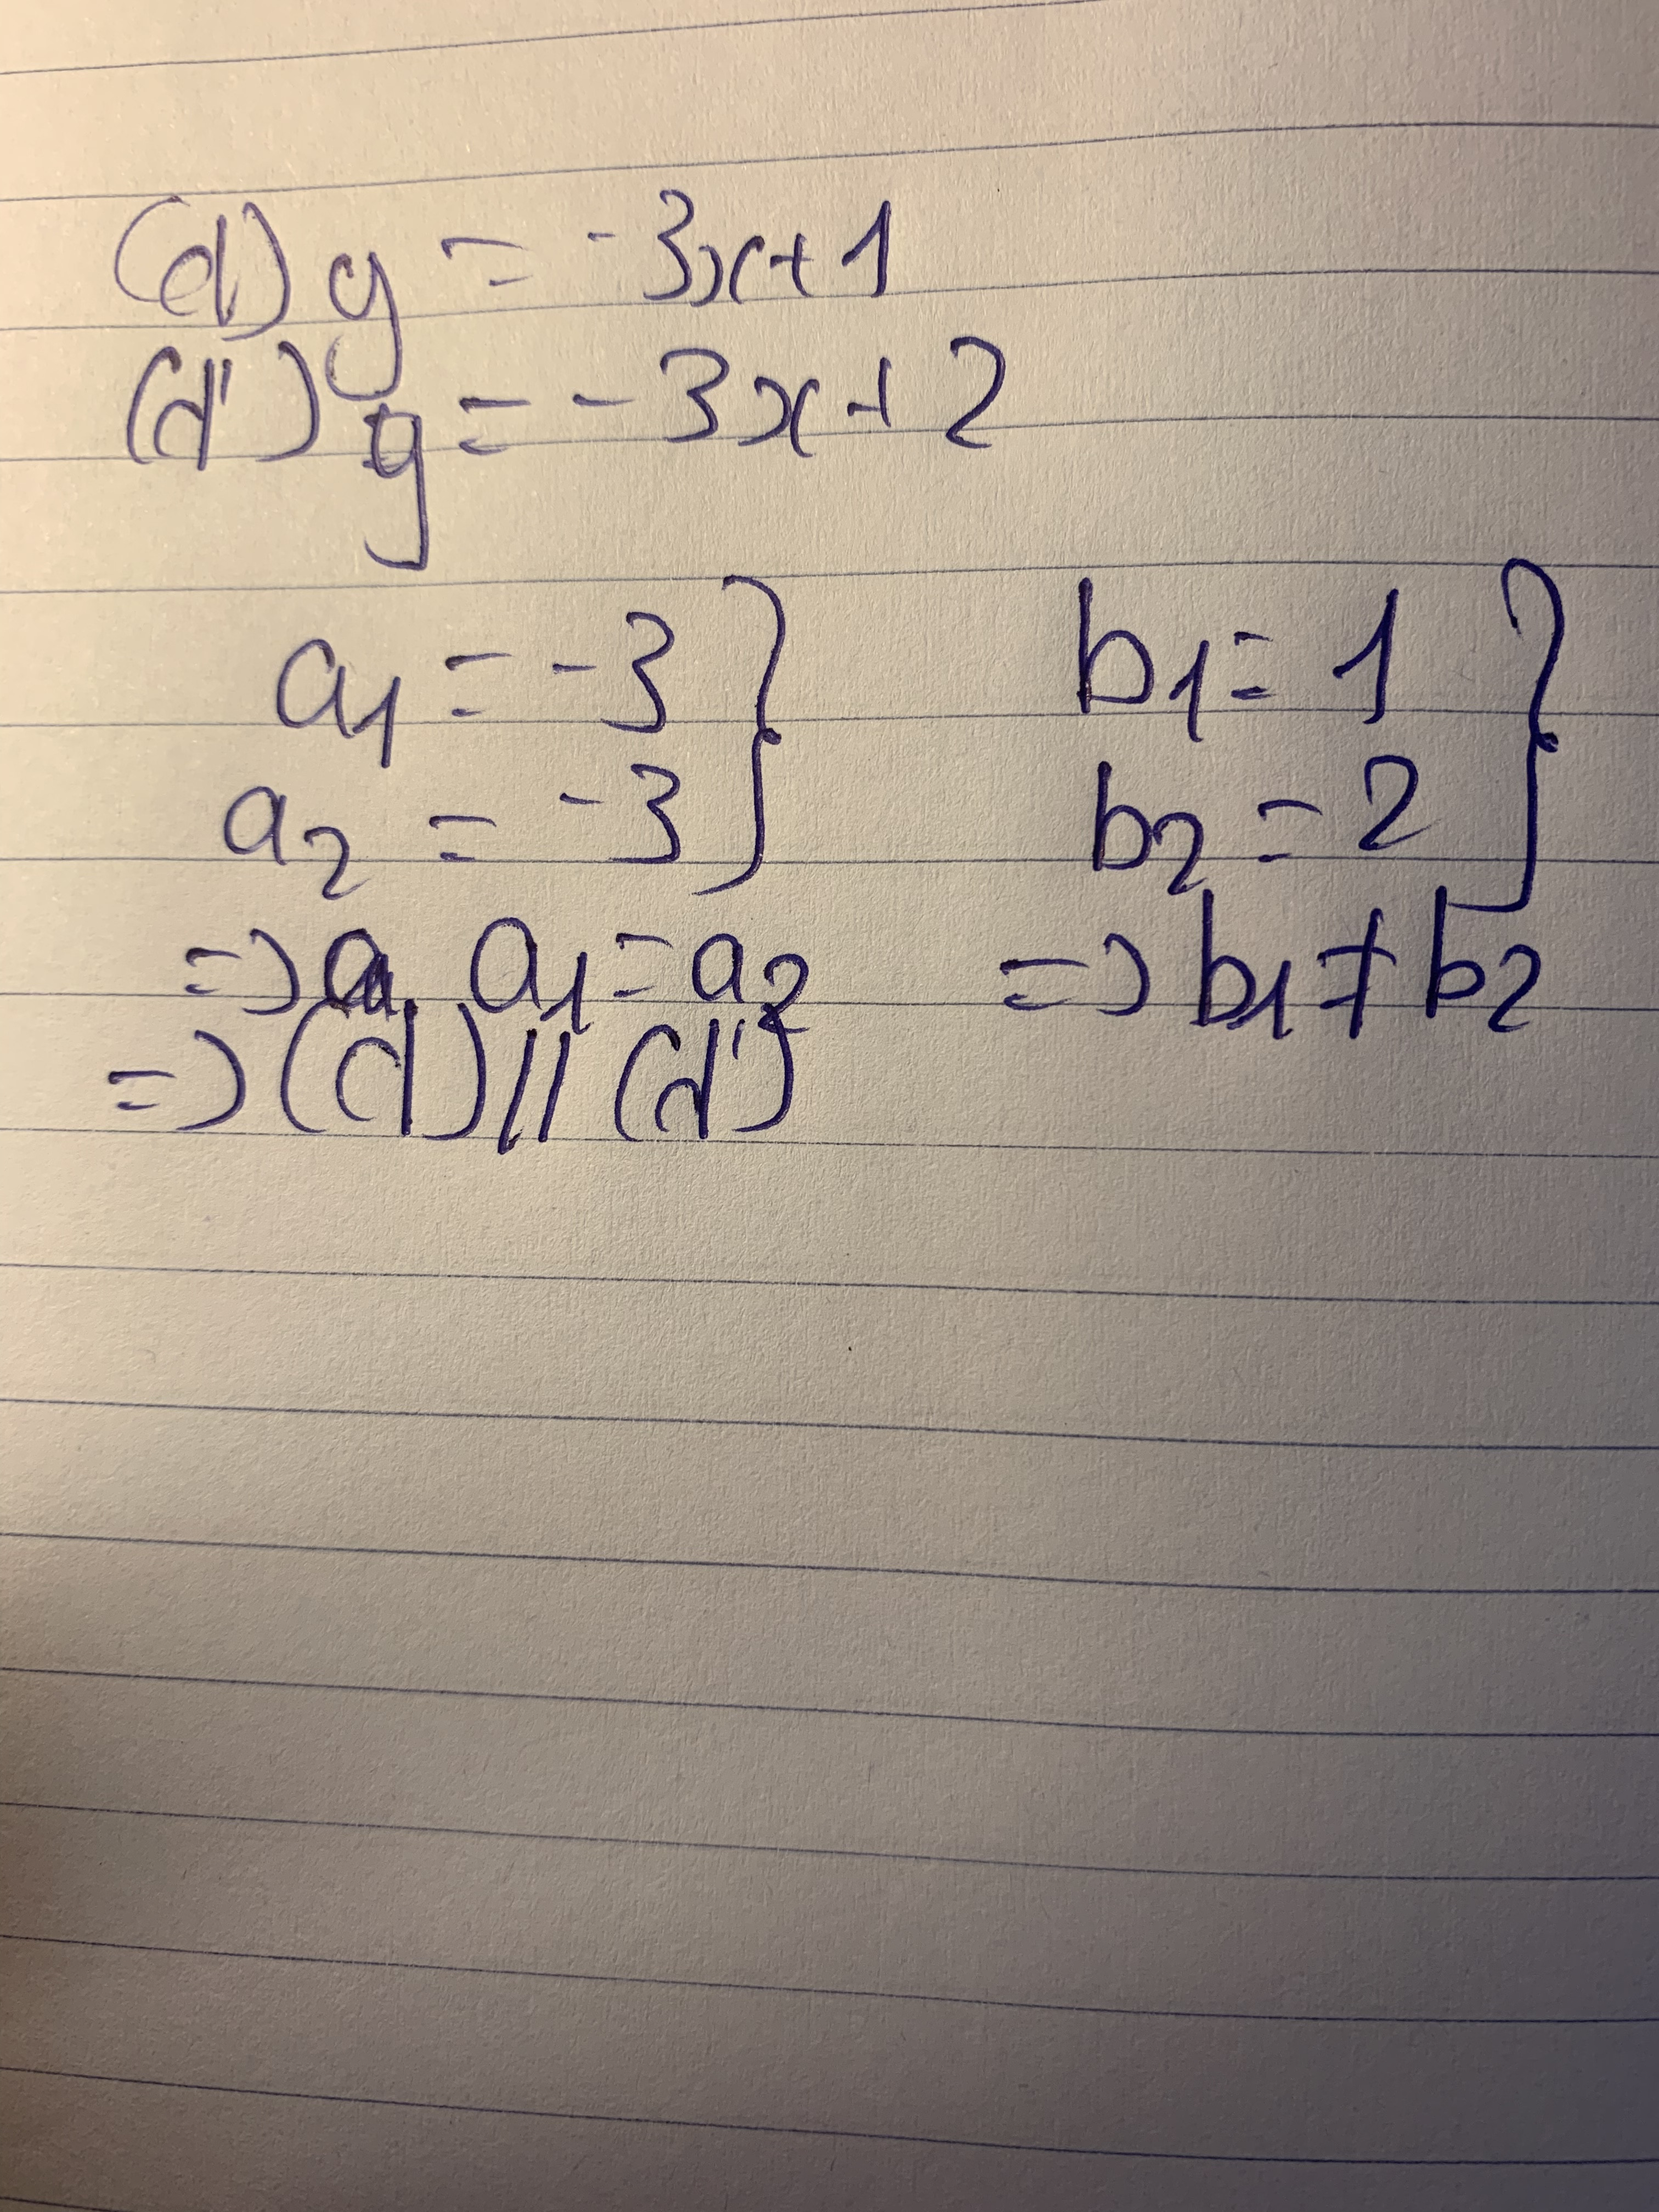 (d) y = -3x+1
(d') y = -3x+2
a1 = -3 } b1 = 1 }
a2 = -3 } b2 = 2 }
=> a1 = a2 => b1 ≠ b2
=> (d) // (d')